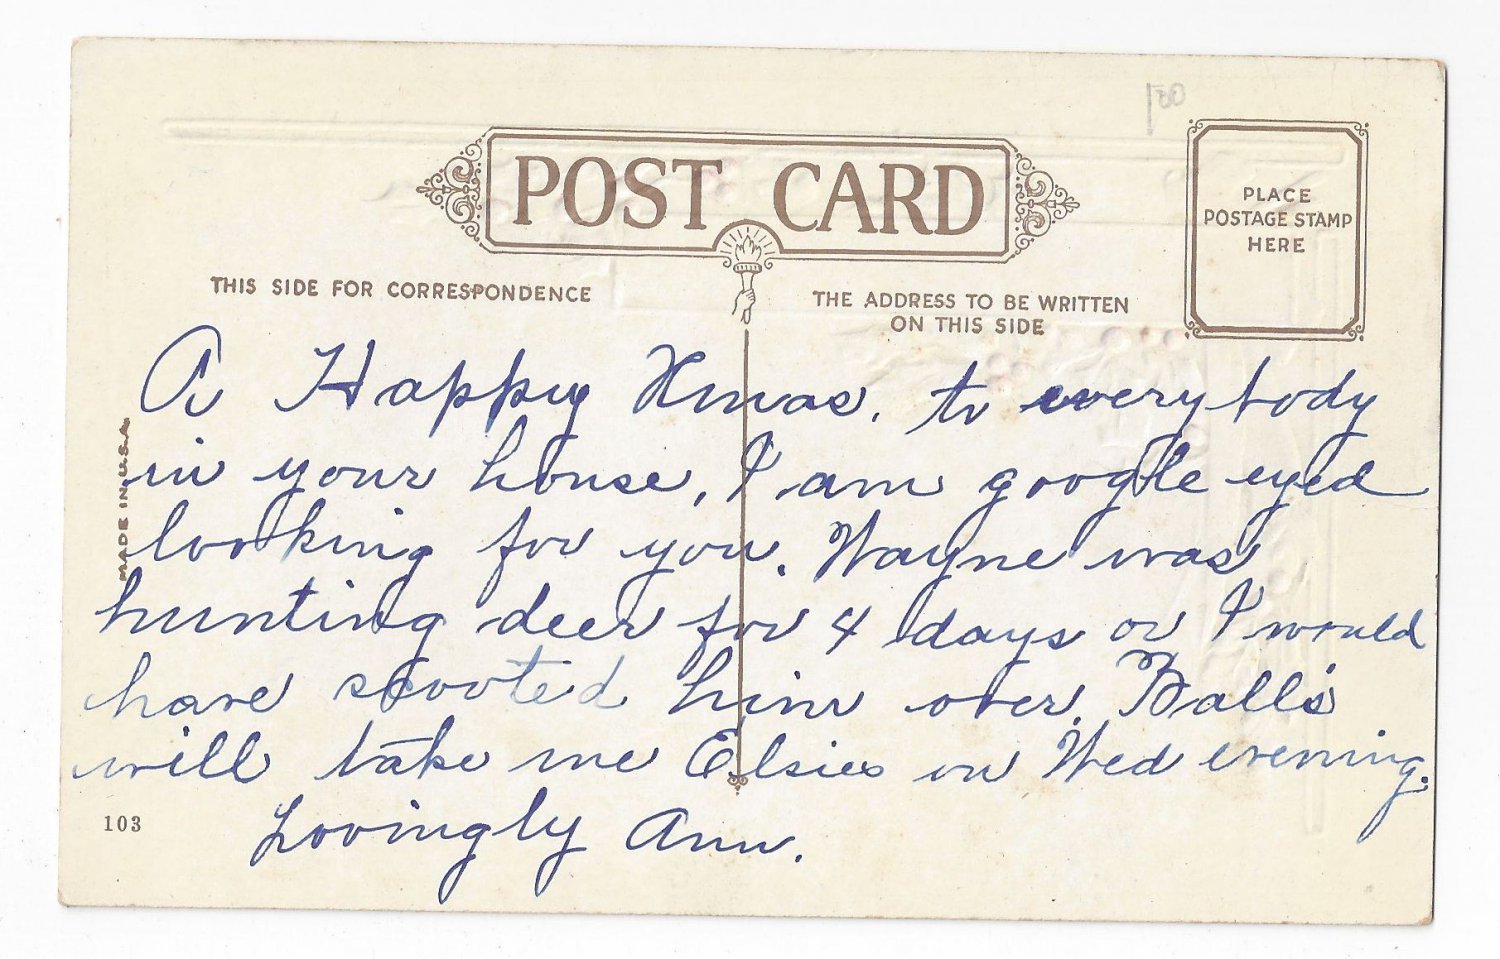 POST CARD
PLACE
POSTAGE STAMP
HERE
THIS SIDE FOR CORRESPONDENCE
THE ADDRESS TO BE WRITTEN
ON THIS SIDE
A Happy Xmas. to everybody
in your house, I am google eyed
looking for you. Wayne was
hunting deer for 4 days or I would
have scooted him over. Ball's
will take me Elsies on Wed evening.
Lovingly Ann.
MADE IN U.S.A.
103